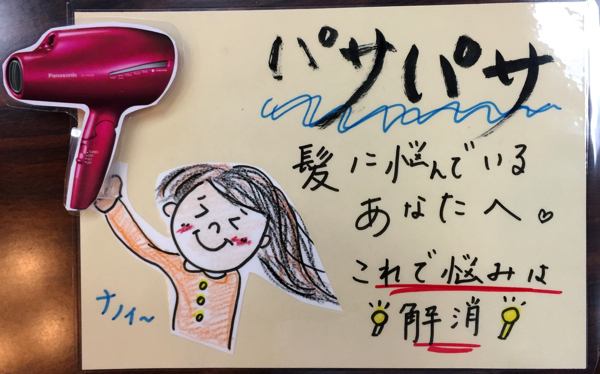 Panasonic
パサパサ
髪に悩んでいる
あなたへ。
これで悩みは
解消
ナノイ〜